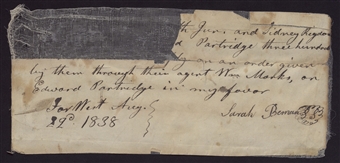 th Junr and Sidney Rigdon
d Partridge three hundred
y on an order given
by them through their agent Wm Marks, on
Edward Partridge in my favor
Far West Augt
29th 1838
Sarah Beman